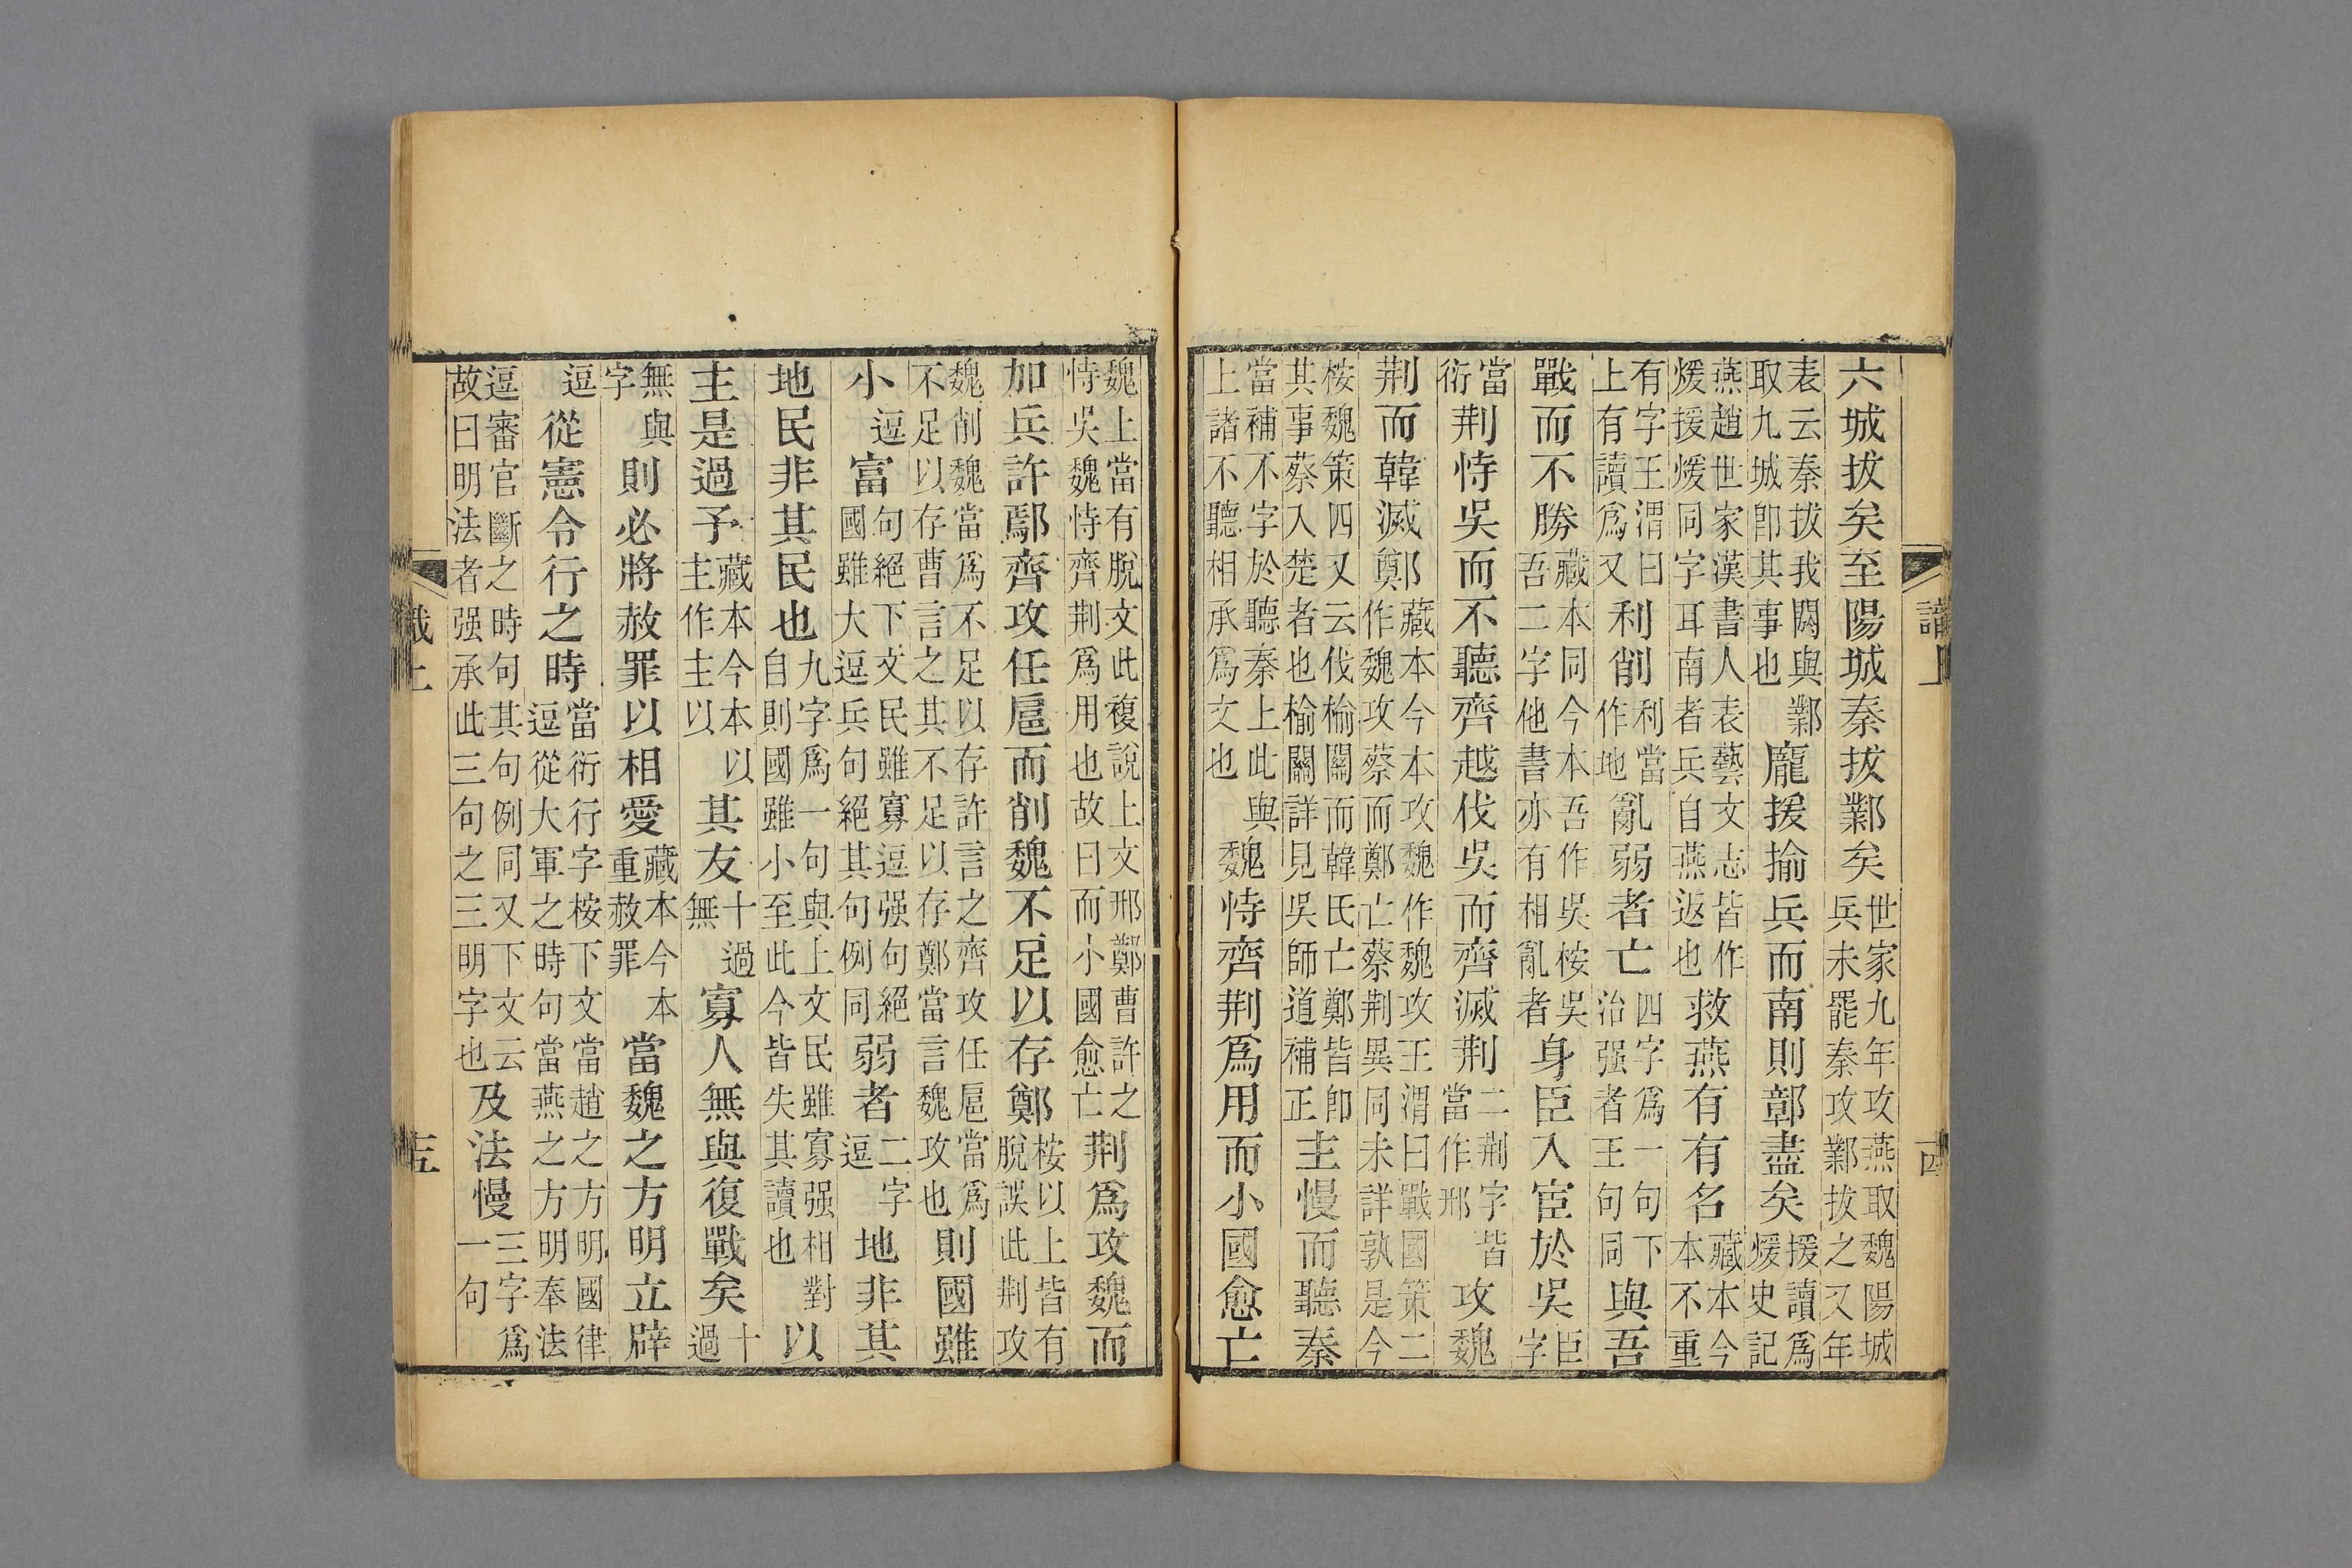 識上
十四
六城拔矣至陽城秦拔鄴矣世家九年攻燕取魏陽城兵未罷秦攻鄴拔之又年
表云秦拔我閼與鄴取九城卽其事也龐援揄兵而南則鄣盡矣援讀爲煖史記
燕趙世家漢書人表藝文志皆作煖援煖同字耳南者兵自燕返也救燕有有名藏本今本不重
有字王渭曰上有讀爲又利削利當作地亂弱者亡四字爲一句下治强者王句同與吾
戰而不勝藏本同今本吾作吳桉吳吾二字他書亦有相亂者身臣入宦於吳臣字
當衍荆恃吳而不聽齊越伐吳而齊滅荆二荆字皆當作邢攻魏
荆而韓滅鄭藏本今本攻魏作魏攻王渭曰戰國策二作魏攻蔡而鄭亡蔡荆異同未詳孰是今
桉魏策四又云伐榆關而韓氏亡鄭皆卽其事蔡入楚者也榆關詳見吳師道補正主慢而聽秦
當補不字於聽秦上此與上諸不聽相承爲文也魏恃齊荆爲用而小國愈亡
魏上當有脫文此複說上文邢鄭曹許之恃吳魏恃齊荆爲用也故曰而小國愈亡荆爲攻魏而
加兵許鄢齊攻任扈而削魏不足以存鄭桉以上皆有脫誤此荆攻
魏削魏當爲不足以存許言之齊攻任扈當爲不足以存曹言之其不足以存鄭當言魏攻也則國雖
小逗富句絕下文民雖寡逗强句絕國雖大逗兵句絕其句例同弱者二字逗地非其
地民非其民也九字爲一句與上文民雖寡强相對自則國雖小至此今皆失其讀也以
主是過予藏本今本以主作主以其友十過無寡人無與復戰矣十過
無與字則必將赦罪以相愛藏本今本重赦罪當魏之方明立辟
逗從憲令行之時當衍行字桉下文當趙之方明國律逗從大軍之時句當燕之方明奉法
逗審官斷之時句其句例同又下文云故曰明法者强承此三句之三明字也及法慢三字爲一句
識上
十五